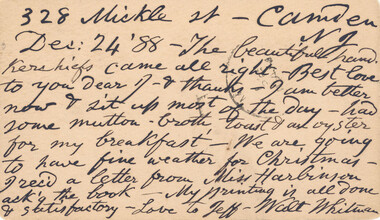 328 Mickle st - Camden
N J
Dec: 24 '88 - The beautiful hand-
kerchiefs came all right - Best love
to you dear J - & thanks - I am better
now & sit up most of the day - had
some mutton-broth toast & an oyster
for my breakfast - We are going
to have fine weather for Christmas -
I rec'd a letter from Miss Harbinson
ack'g the book - My printing is all done
& satisfactory - Love to Jeff - Walt Whitman